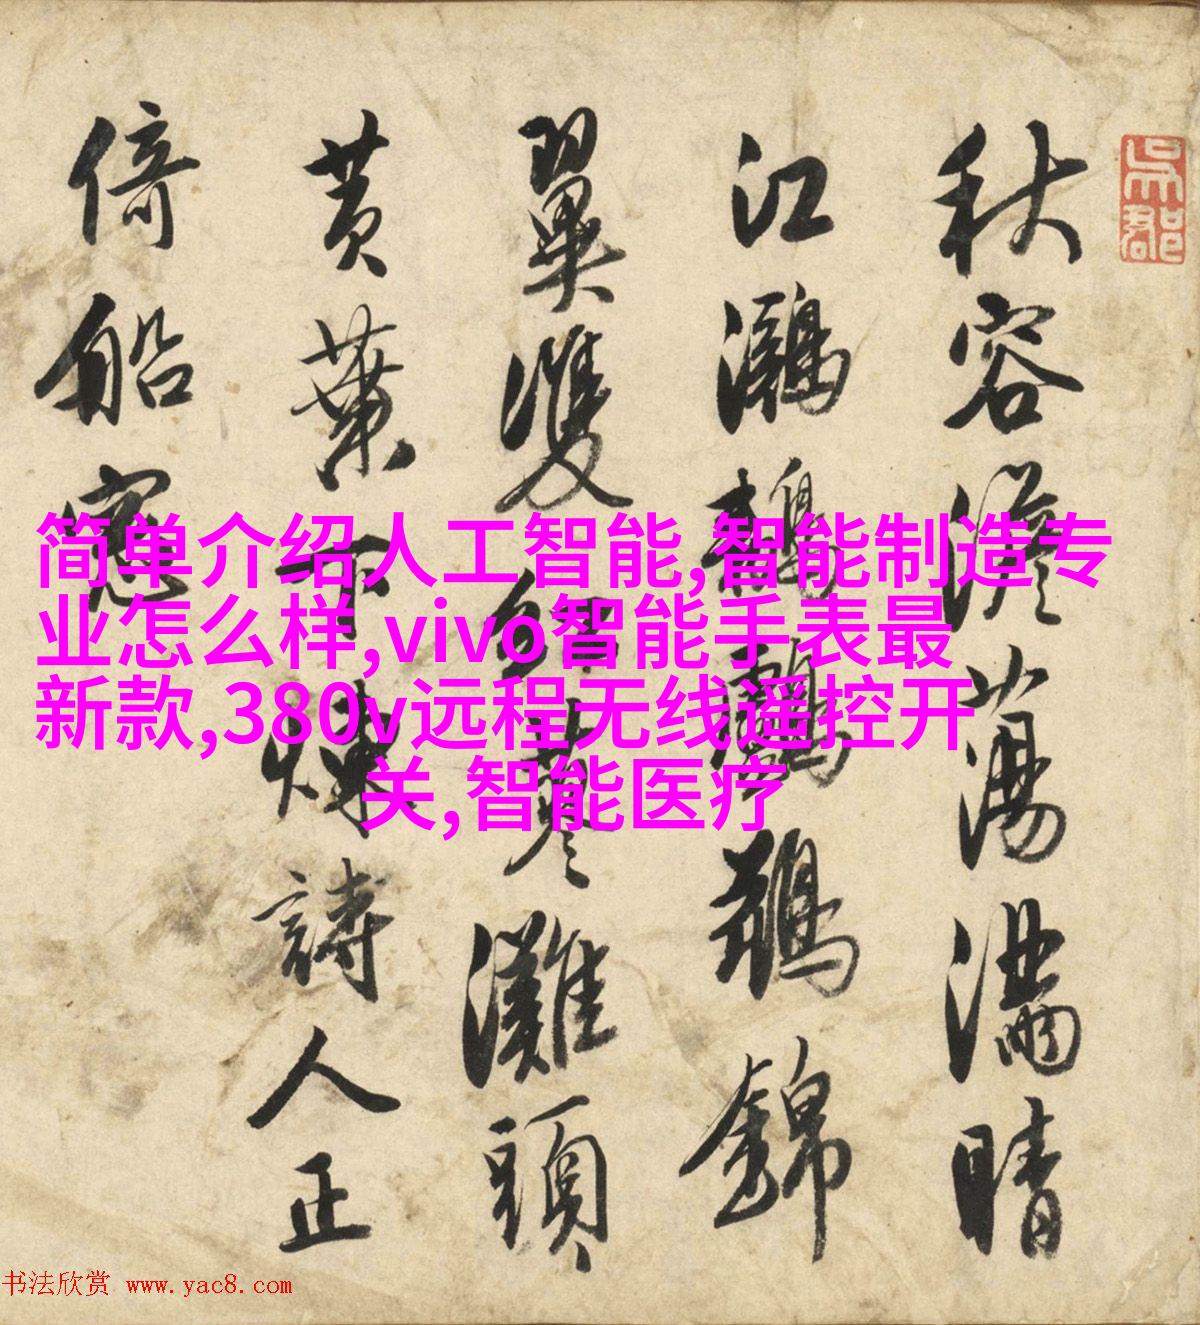 吳郡
秋容澹蕩滿晴
江鸂鶒鸕鷀錦
翼雙紅蓼灘頭
黃葉下煉詩人正
倚船窓
简单介绍人工智能,智能制造专
业怎么样,vivo智能手表最
新款,380v远程无线遥控开
关,智能医疗
书法欣赏 www.yac8.com